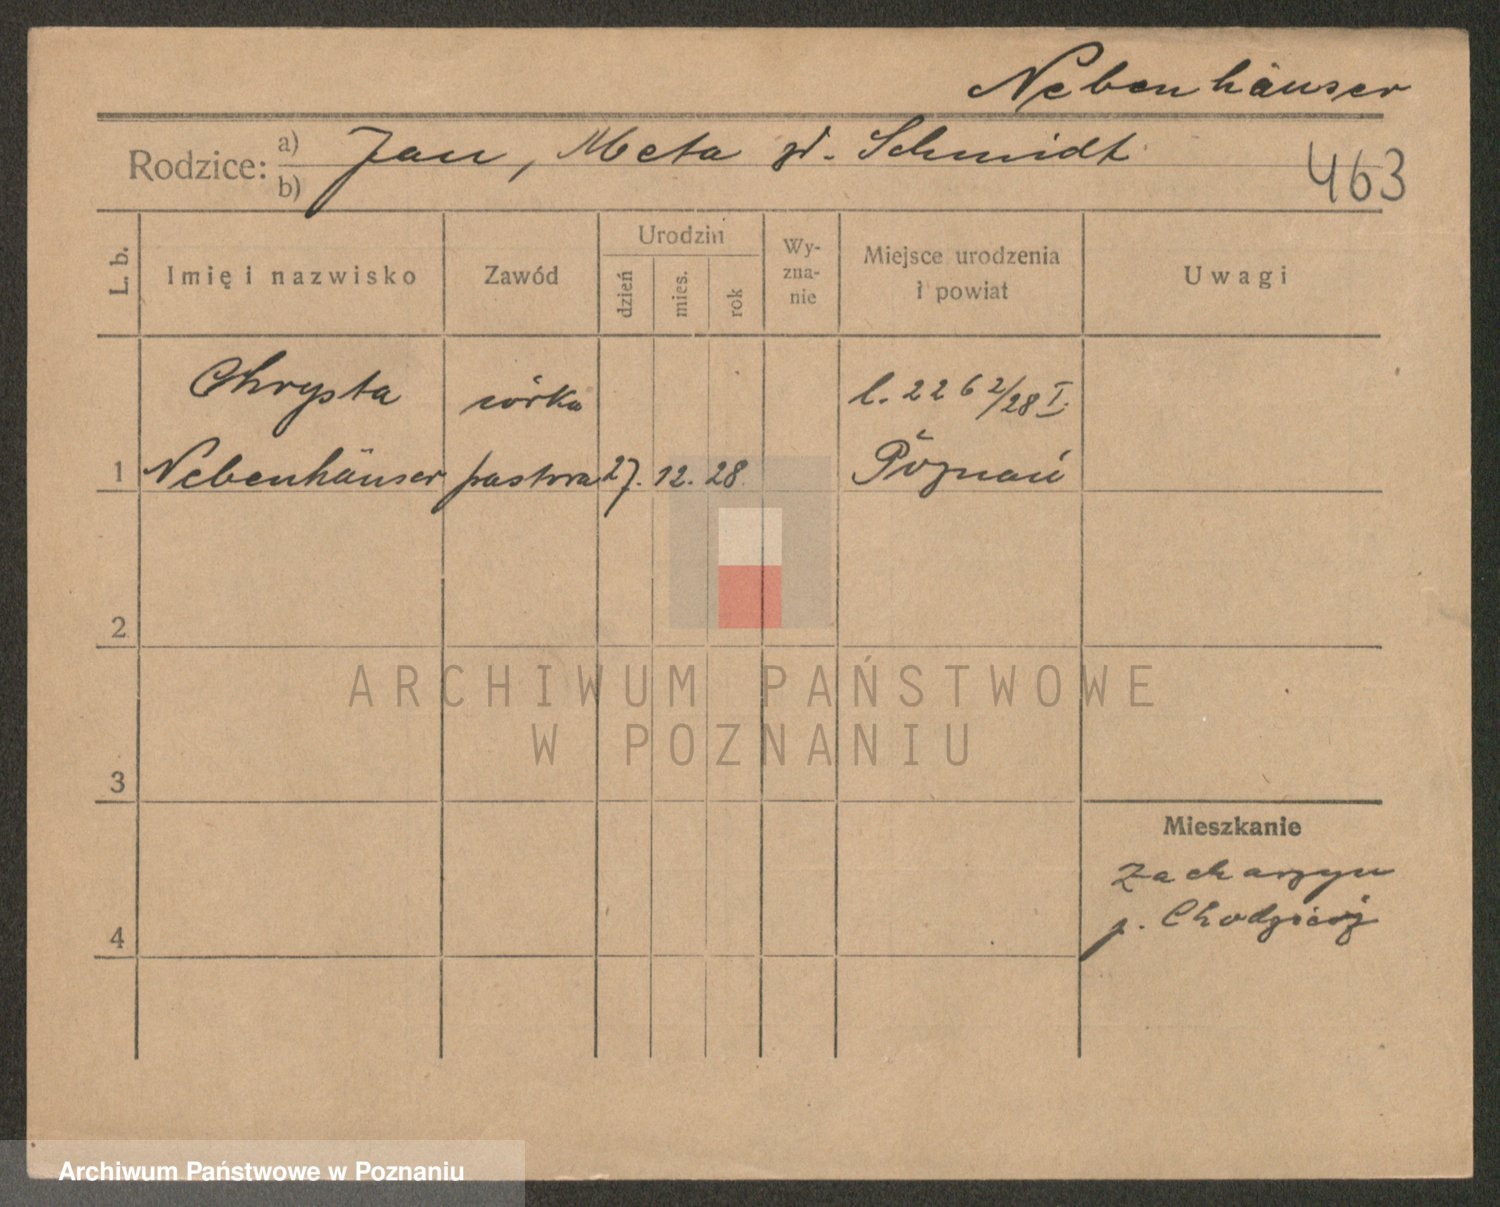 Nebenhäuser
Rodzice: a) Jan, Meta zd. Schmidt
b)
463
L. b.
Imię i nazwisko
Zawód
Urodzin
dzień
mies.
rok
Wy-
zna-
nie
Miejsce urodzenia
i powiat
Uwagi
Chrysta córka l. 2262/28 I.
1 Nebenhäuser pastora 27. 12. 28 Poznań
2
3
Mieszkanie
Zacharzyn
p. Chodzież
4
ARCHIWUM PAŃSTWOWE
W POZNANIU
Archiwum Państwowe w Poznaniu